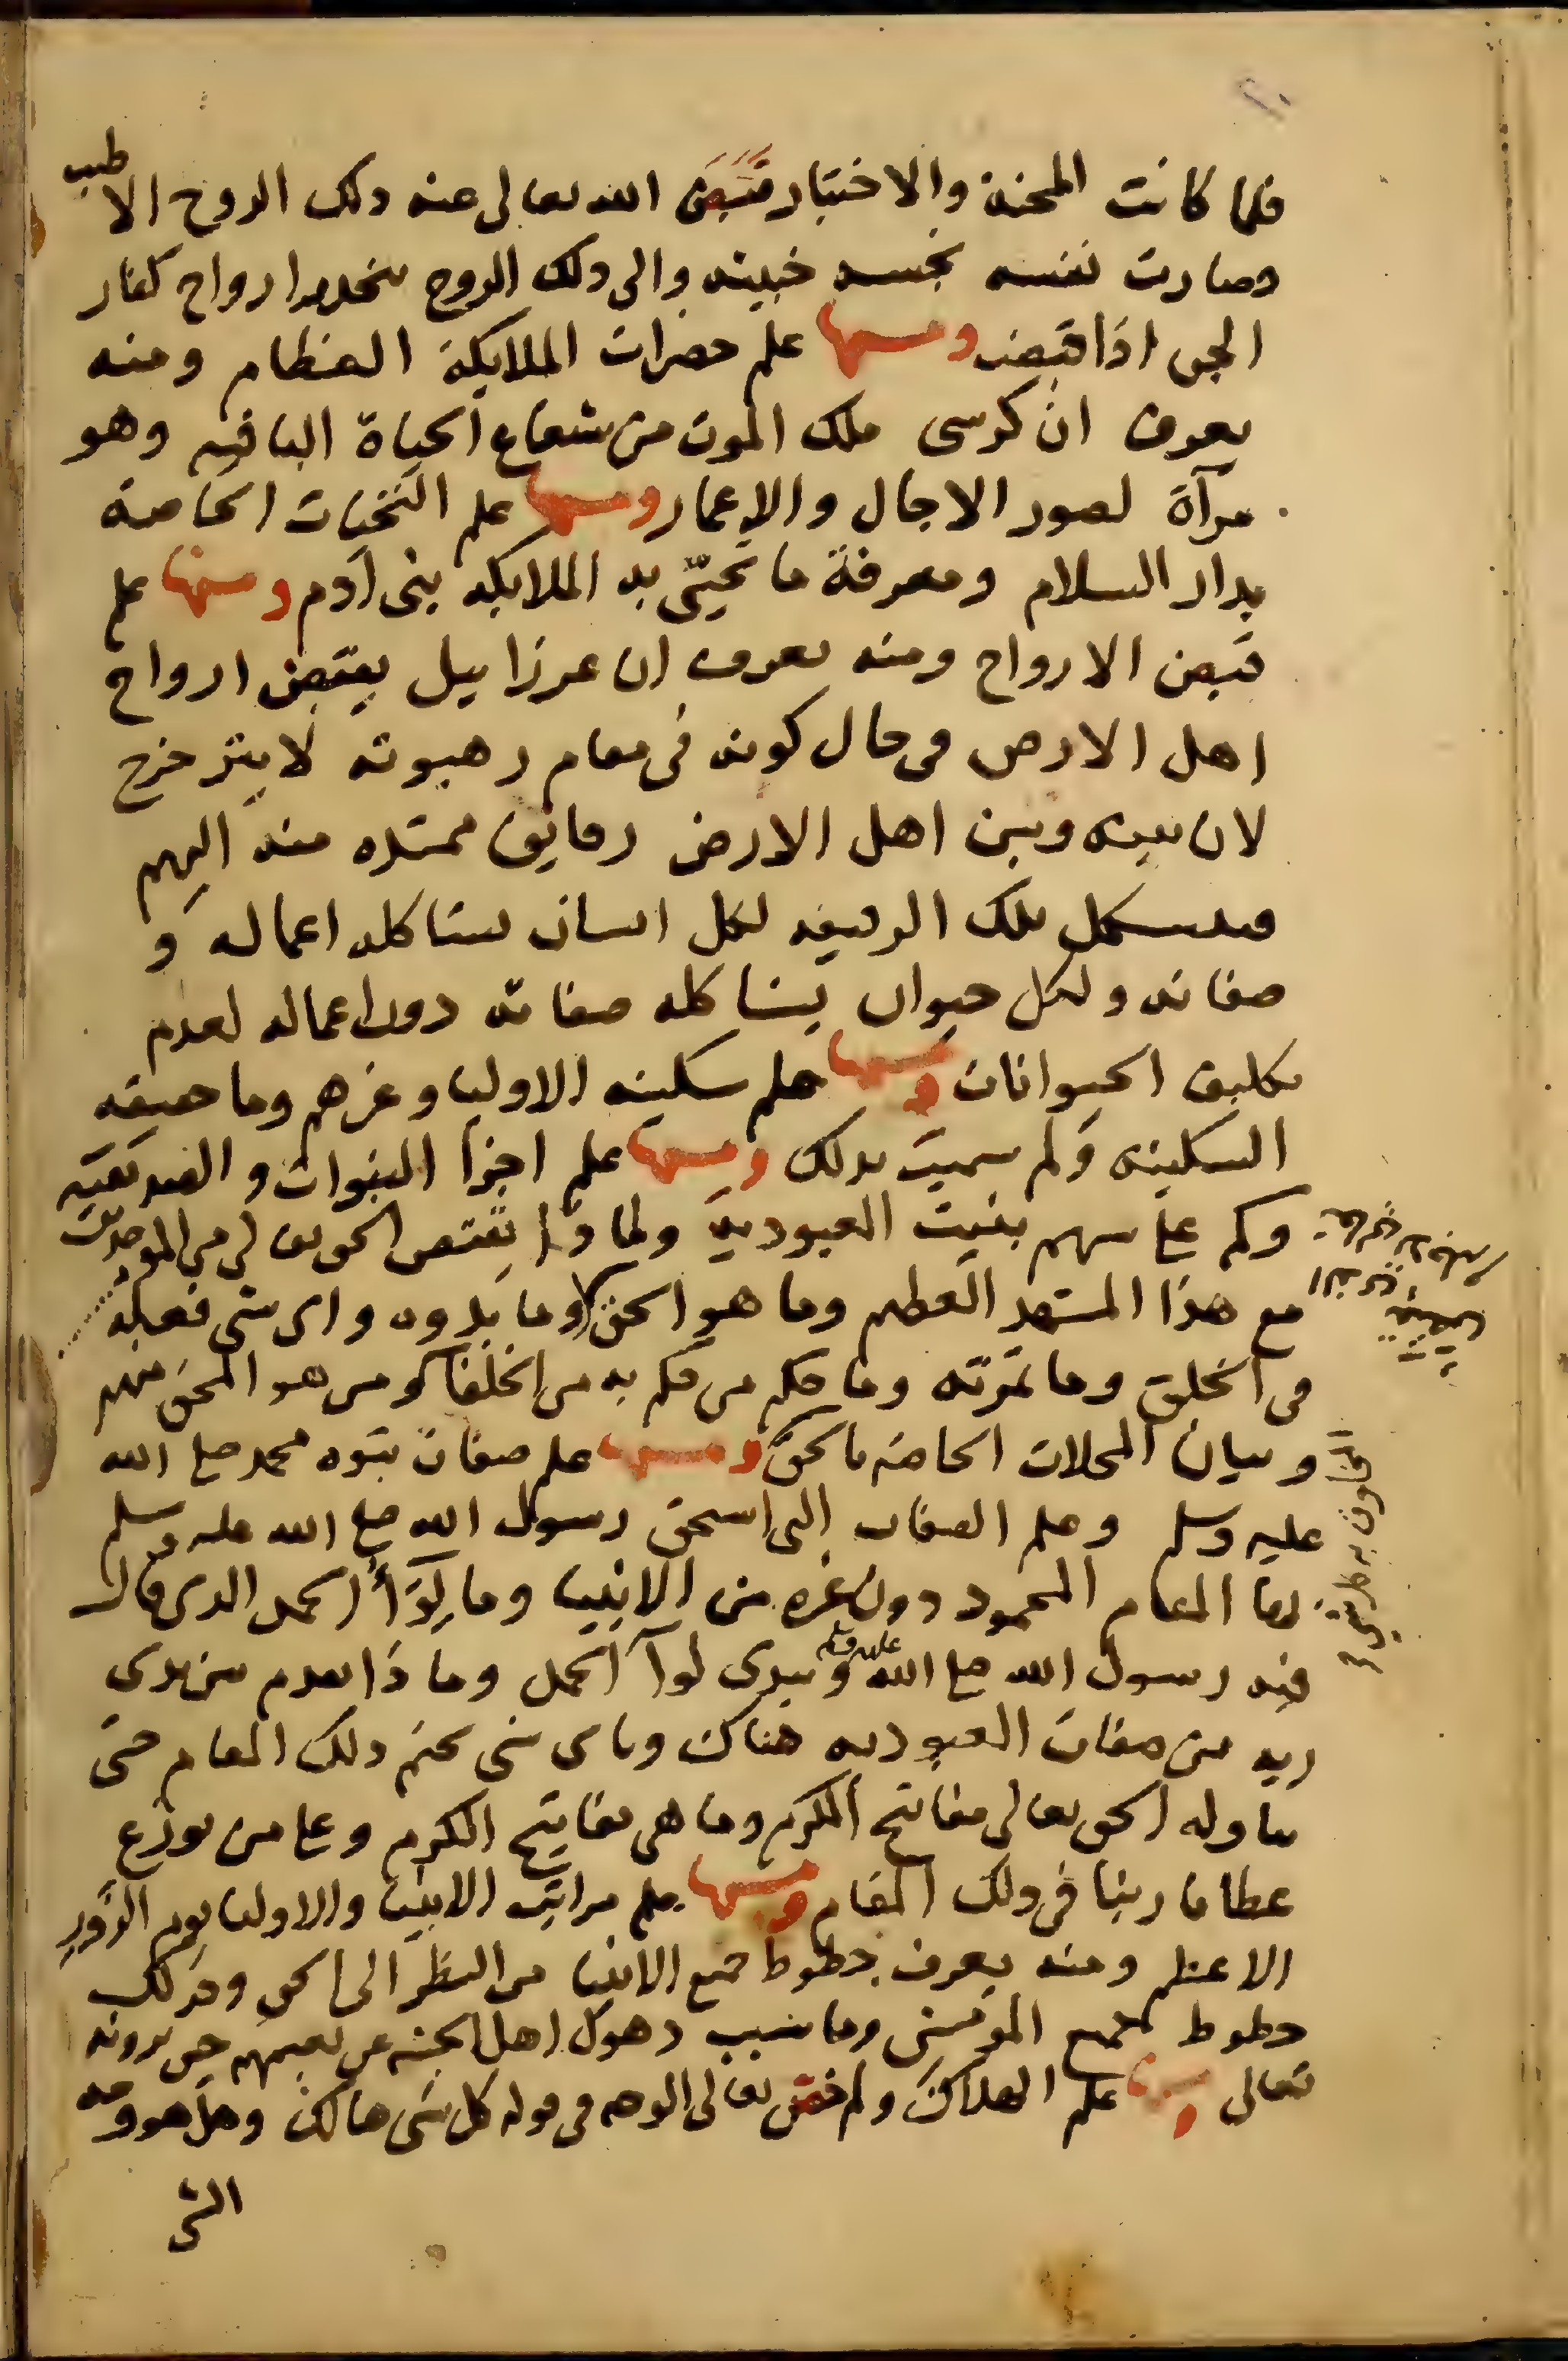 فلما كانت المحنة والاختبار قبض الله تعالى عنه ذلك الروح الاطيب
وصارت نفسه نجسه خبيثه والى ذلك الروح ارواح كفار
الجن اذا قبضت ومنها علم حضرات الملايكة العظام ومنه
يعرف ان كرسى ملك الموت من شعاع الحياة الباقيه وهو
مرآة لصور الاجال والاعمار ومنها علم التحيات الخاصة
بدار السلام ومعرفة ما تحيّى به الملايكه بنى آدم ومنها علم
قبض الارواح ومنه يعرف ان عزراييل يقبض ارواح
اهل الارض فى حال كونه فى مقام رهبوته لا يتزحزح
لان بينه وبين اهل الارض رقايق ممتده منه اليهم
تلك الرقيقه لكل انسان بشاكله اعماله و
صفاته ولكل حيوان بشاكله صفاته دون اعماله لعدم
تكليف الحيوانات ومنها علم سكينه الاوليا وغيرهم وما حقيقه
السكينه ولم سميت بذلك ومنها علم اجزا النبوات والصديقيه
وكم على سهم بنيت العبودية ولماذا الحق تعالى من الموحدين
مع هذا المشهد العظيم وما هو الحق وما بدوه واى شى فعله
فى الخلق وما ثمرته وما حكم من حكم به من الخلفا ومن هو المحق منهم
وبيان المحلات الخاصه بالحق ومنها علم صفات نبوه محمد صلى الله
عليه وسلم وعلم الصفات التى استحق رسول الله صلى الله عليه وسلم
بها المقام المحمود دون غيره من الانبيا وما لِوَآأ الحمد الذى قال
فيه رسول الله صلى الله عليه وسلم وبيدى لوآ الحمد وماذا يقدم بين يدى
ربه من صفات العبوديه هناك وباى شى يختم ذلك المقام حتى
يناوله الحق تعالى مفاتيح الكرم وما هى مفاتيح الكرم وعلى من يوزع
عطايا ربنا فى ذلك المقام ومنها علم مراتب الانبيا والاوليا يوم الزَّور
الاعظم ومنه يعرف حظوظ جميع الانبيا من النظر الى الحق وكذلك
حظوظ جميع المومنين وما سبب ذهول اهل الجنه عن نعيمهم حين يرونه
تعالى ومنها علم الهلاك ولم خص تعالى الوجه فى قوله كل شى هالك وهل هو وجه
الشى